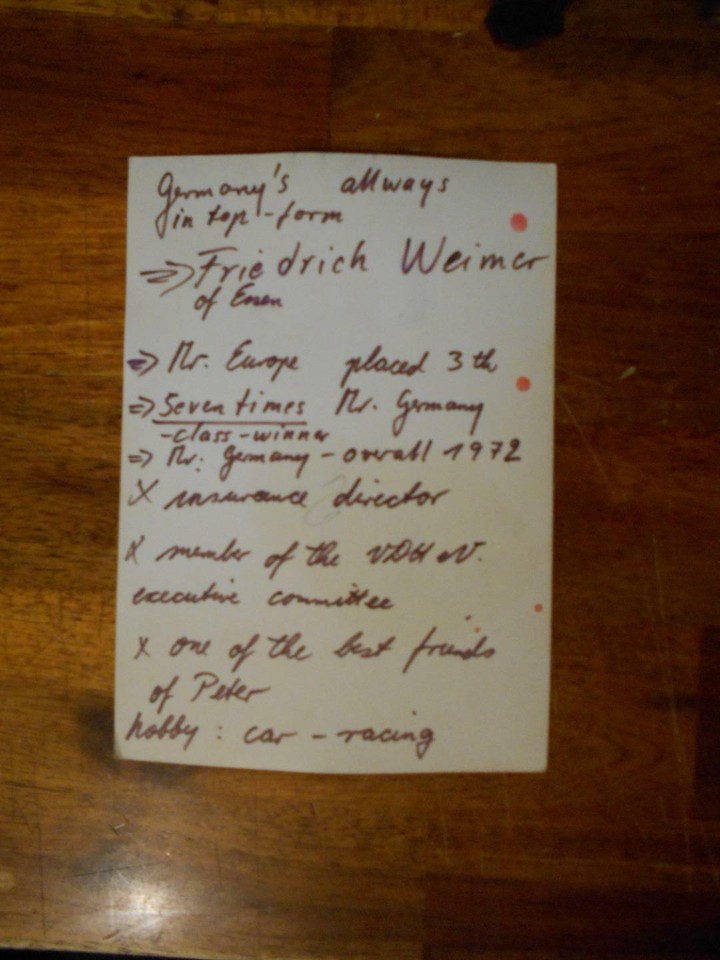 Germany's allways
in top-form
=> Friedrich Weimer
of Essen
=> Mr. Europe placed 3 th
=> Seven times Mr. Germany
-class-winner
=> Mr. Germany - overall 1972
x insurance director
x member of the VDH eV.
executive committee
x one of the best friends
of Peter
hobby : car - racing